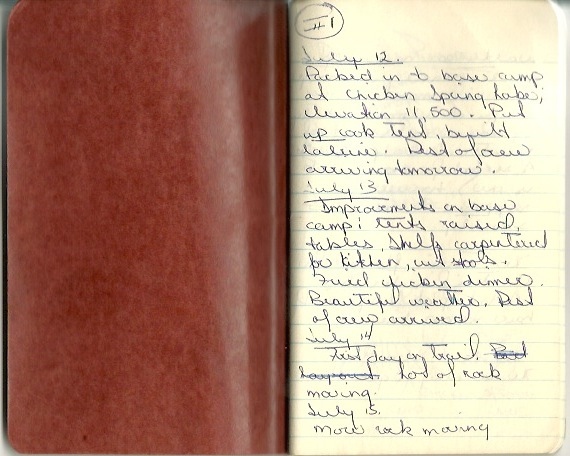 #1
July 12.
Packed in to base camp
at Chicken Spring Lake;
elevation 11,500. Put
up cook tent, built
latrine. Rest of crew
arriving tomorrow.
July 13
Improvements on base
camp: tents, raised,
tables, shelfs carpentered
for kitchen, cut stools.
Fried chicken dinner.
Beautiful weather. Rest
of crew arrived.
July 14
First day on trail.
Lots of rock
moving.
July 15.
more rock moving